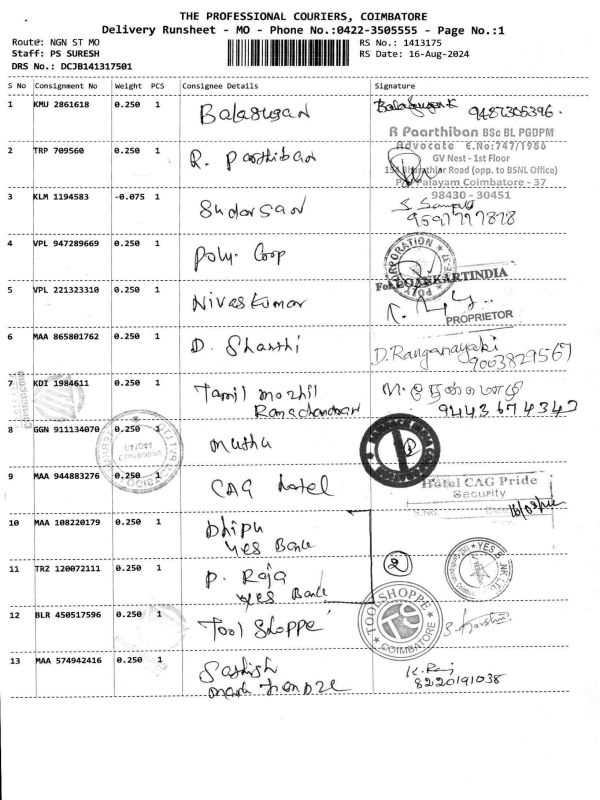 THE PROFESSIONAL COURIERS, COIMBATORE
Delivery Runsheet - MO - Phone No.:0422-3505555 - Page No.:1
Route: NGN ST MO
RS No.: 1413175
Staff: PS SURESH
RS Date: 16-Aug-2024
DRS No.: DCJB141317501
S No Consignment No Weight PCS Consignee Details Signature
1 KMU 2861618 0.250 1 Balasugan 9487305396.
R Paarthiban BSc BL PGDPM
Advocate E.No:747/1986
2 TRP 709560 0.250 1 R. Parthiban
GV Nest - 1st Floor
Road (opp. to BSNL Office)
Palayam Coimbatore - 37
98430 - 30451
3 KLM 1194583 -0.075 1 Sudarsan
9597797878
4 VPL 947289669 0.250 1 Poly. Coop
CORPORATION
POLY
For LOANKARTINDIA
5 VPL 221323310 0.250 1 Nivaskumar
PROPRIETOR
6 MAA 865801762 0.250 1 D. Shanthi D. Ranganayaki
9003829567
7 KDI 1984611 0.250 1 Tamil mozhil
Ramachandran
9443674342
8 GGN 911134070 0.250 1 Muthu
9 MAA 944883276 0.250 1 CAG hotel
Hotel CAG Pride
Security
10 MAA 108220179 0.250 1 Dhipu
yes Bank
11 TRZ 120072111 0.250 1 P. Raja
yes Bank
2
YES BANK LTD
12 BLR 450517596 0.250 1 Tool Shoppe
TOOL SHOPPE
TS
COIMBATORE
13 MAA 574942416 0.250 1 Sathish
K. Raj
8220191038